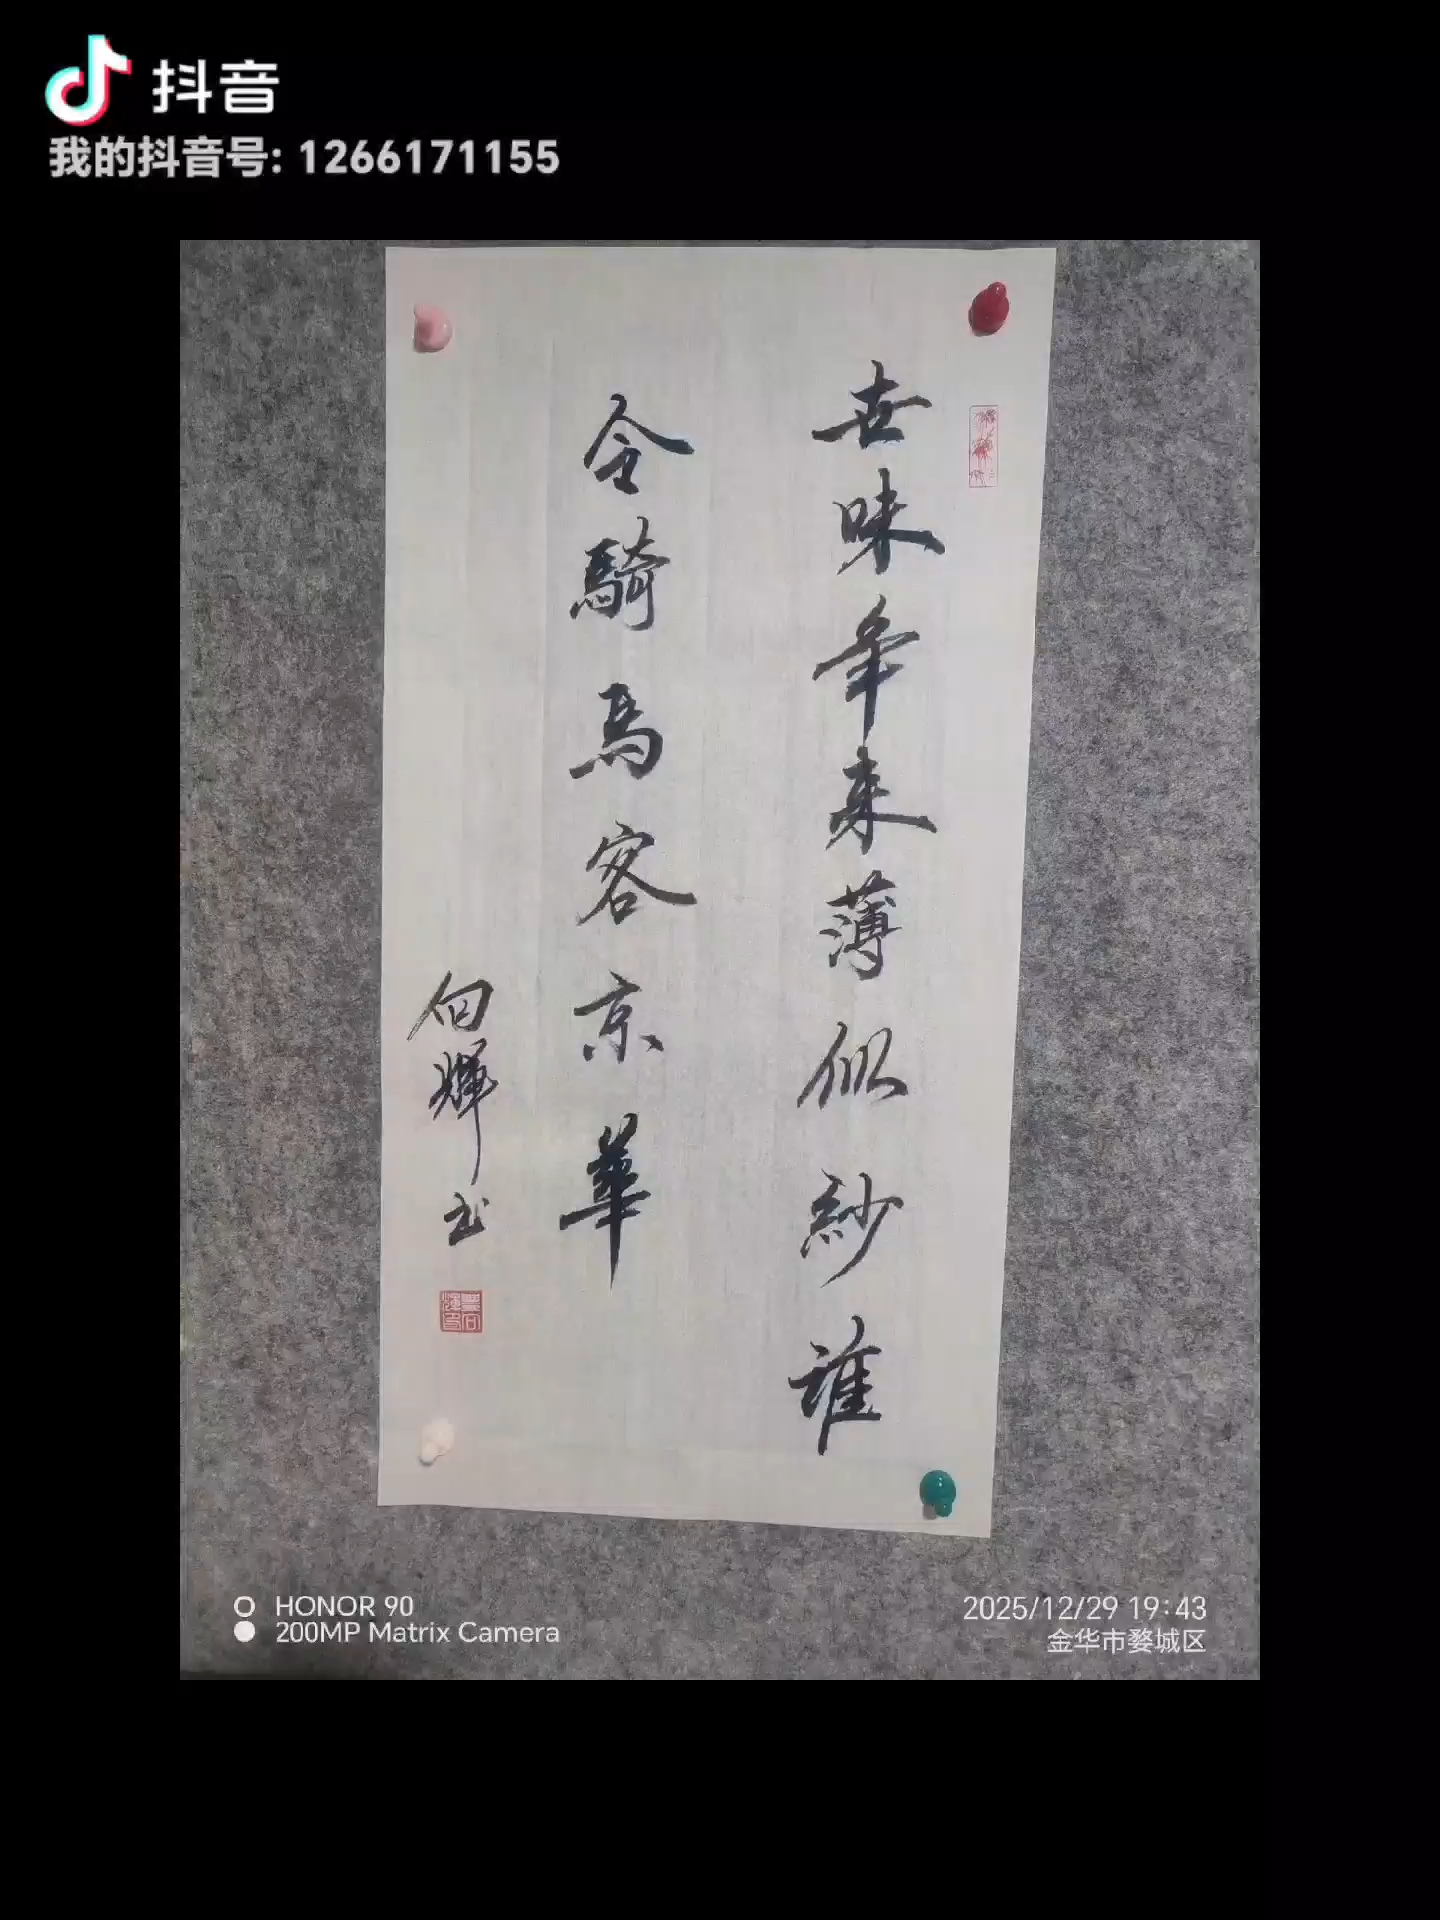 抖音
我的抖音号: 1266171155
世味年来薄似纱誰
令騎馬客京華
向輝书
HONOR 90
200MP Matrix Camera
2025/12/29 19:43
金华市婺城区